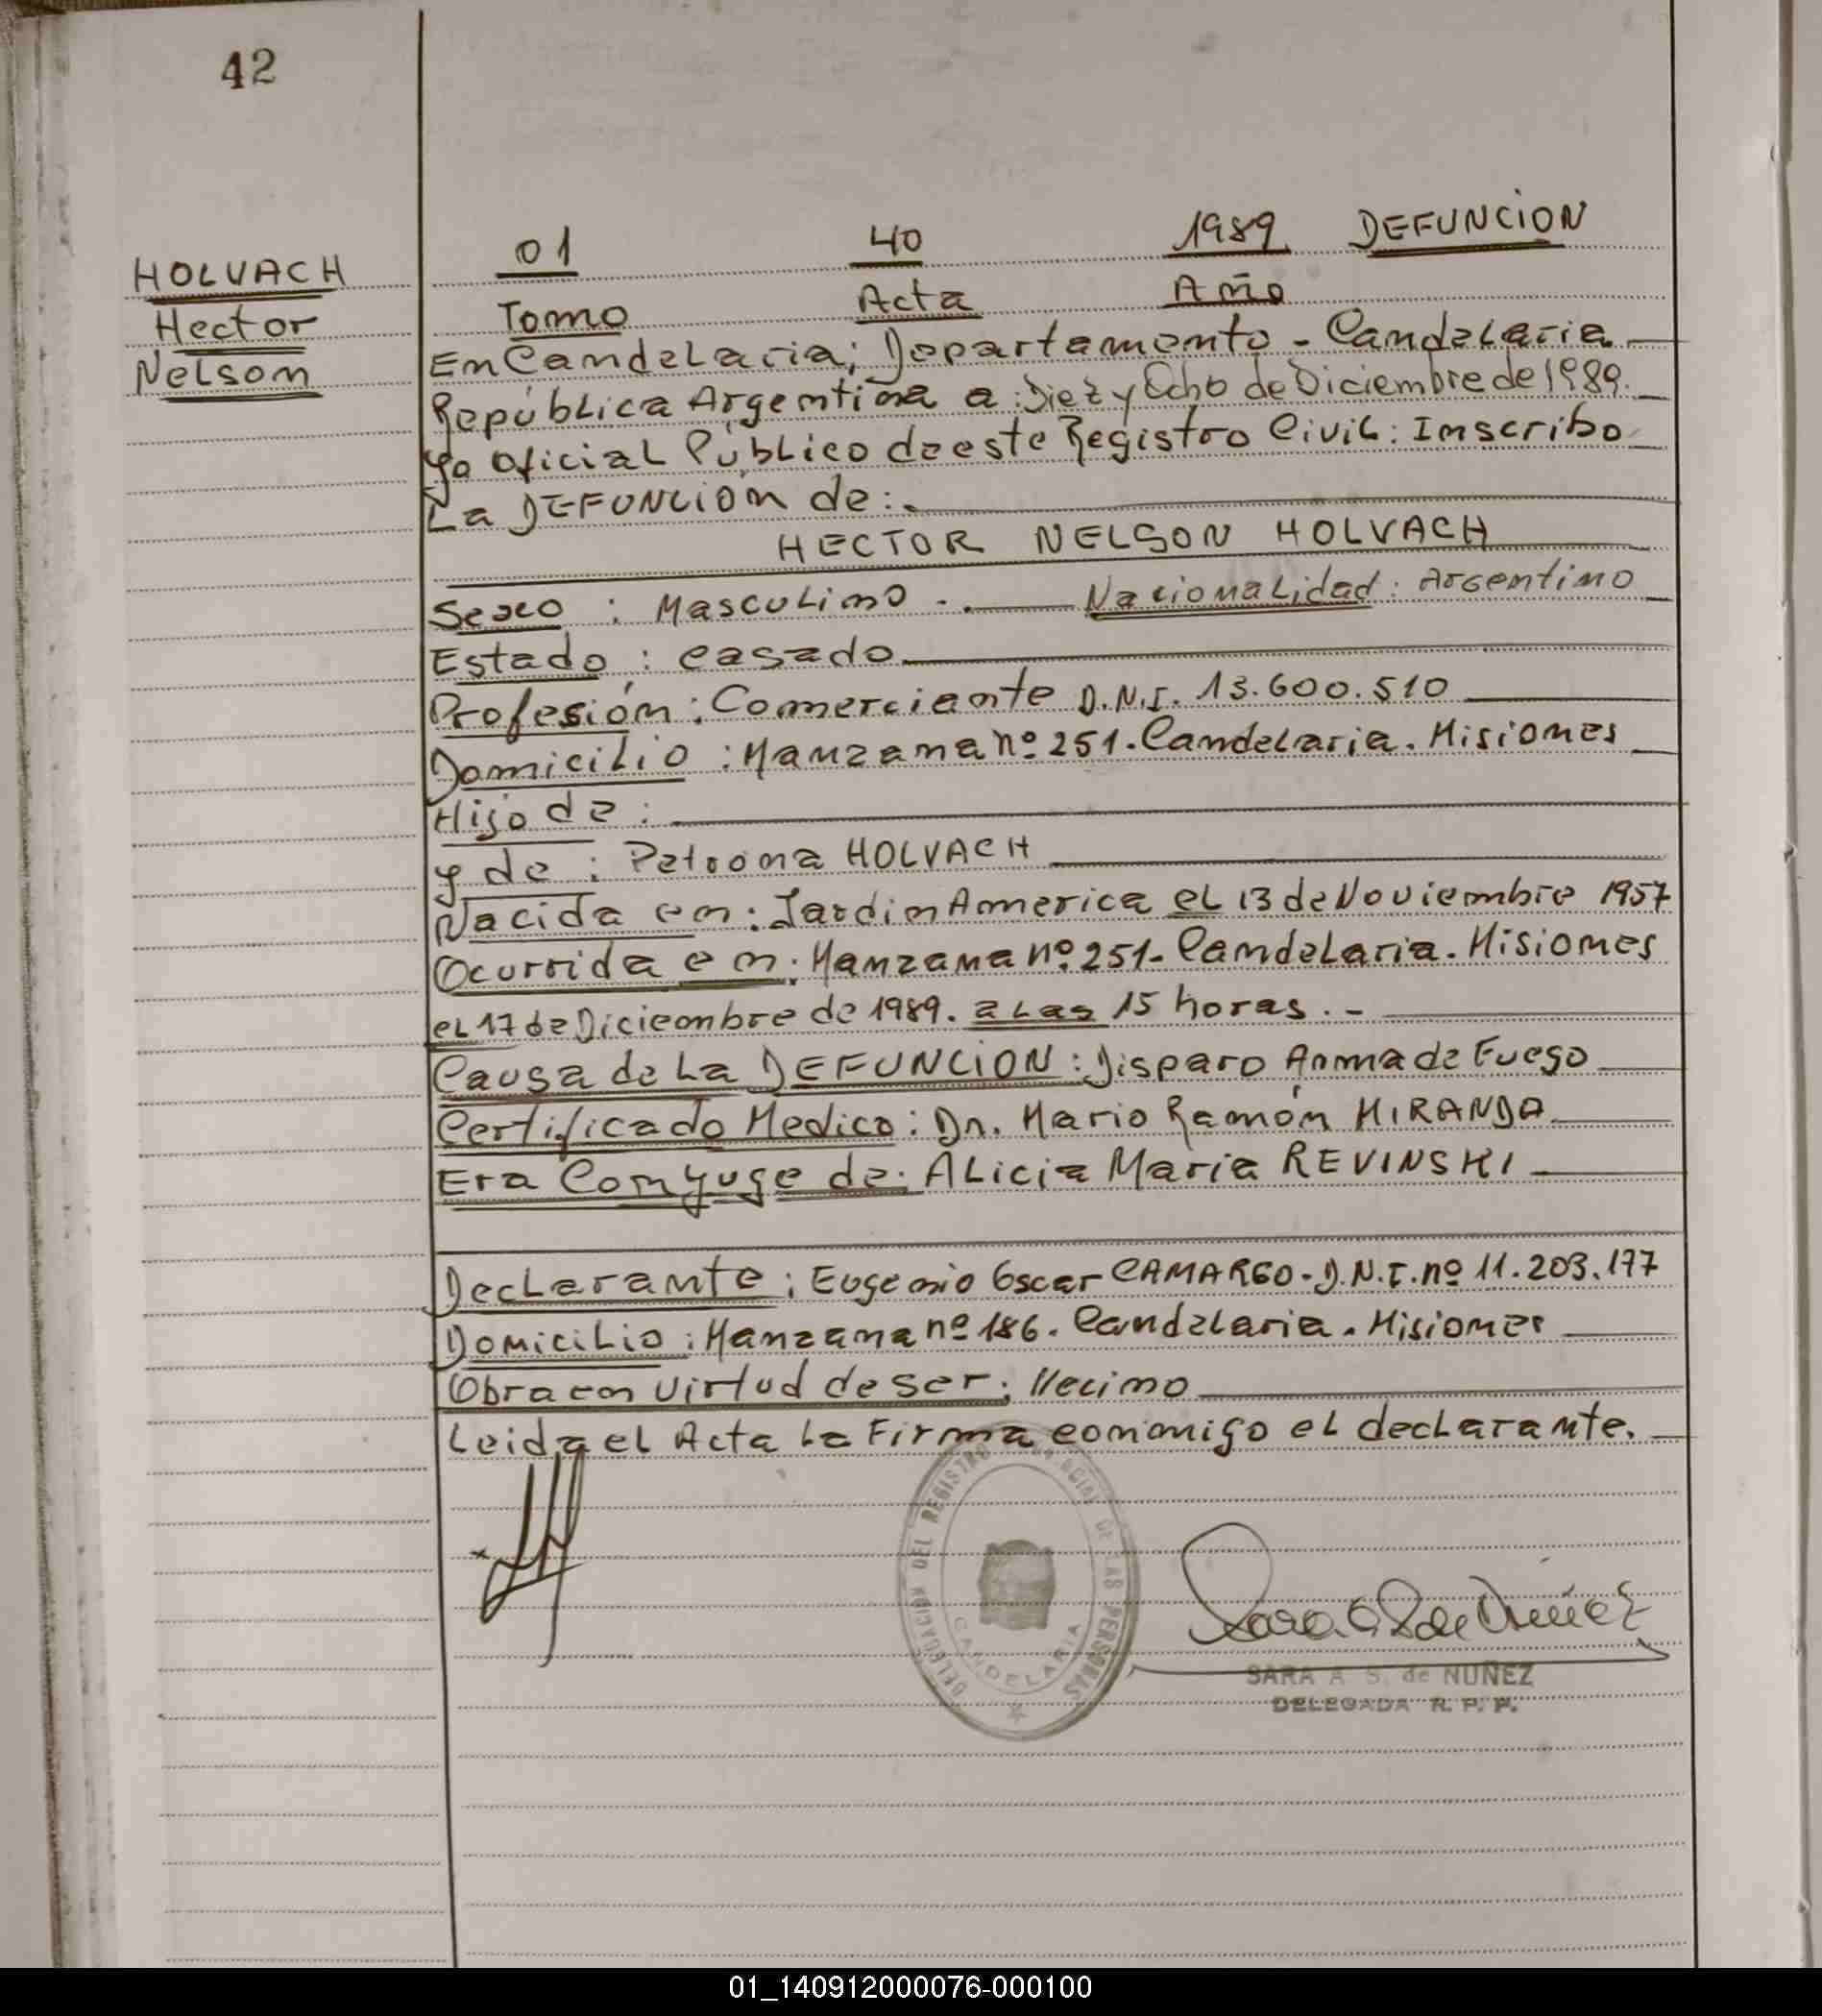 42
HOLVACH
Hector
Nelson
01 40 1989 DEFUNCION
Tomo Acta Año
En Candelaria; Departamento - Candelaria
República Argentina a: Diez y Ocho de Diciembre de 1989.
Yo Oficial Público de este Registro Civil: Inscribo
La DEFUNCIÓN de:.
HECTOR NELSON HOLVACH
Sexo : Masculino -. Nacionalidad: Argentino
Estado : casado
Profesión : Comerciante D.N.I. 13.600.510
Domicilio : Manzana nº 251. Candelaria. Misiones
Hijo de :
y de : Petrona HOLVACH
Nacida en: Jardin America el 13 de Noviembre 1957
Ocurrida en: Manzana nº 251- Candelaria. Misiones
el 17 de Diciembre de 1989. a las 15 horas. -
Causa de La DEFUNCION: Disparo Arma de Fuego
Certificado Medico: Dr. Mario Ramón MIRANDA
Era Conyuge de: ALicia María REVINSKI
Declarante: Eugenio Oscar CAMARGO- D.N.I. nº 11.203.177
Domicilio: Manzana nº 186. Candelaria. Misiones
Obra en virtud de ser: Vecino
Leida el Acta la Firma conmigo el declarante.
DELEGACION DEL REGISTRO PROVINCIAL DE LAS PERSONAS
CANDELARIA
Sara A S de Nuñez
SARA A S. de NUÑEZ
DELEGADA R. P. P.
01_140912000076-000100